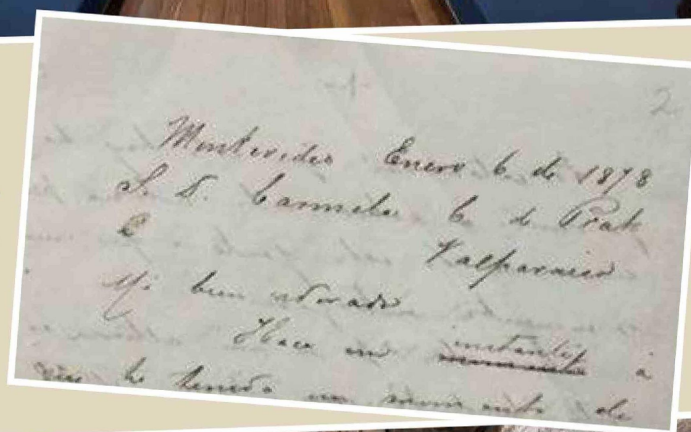 2
Montevideo Enero 6 de 1878
S. D. Carmela C de Prat
Valparaiso
Mi bien adorado
Hace un a
que he tenido un momento de